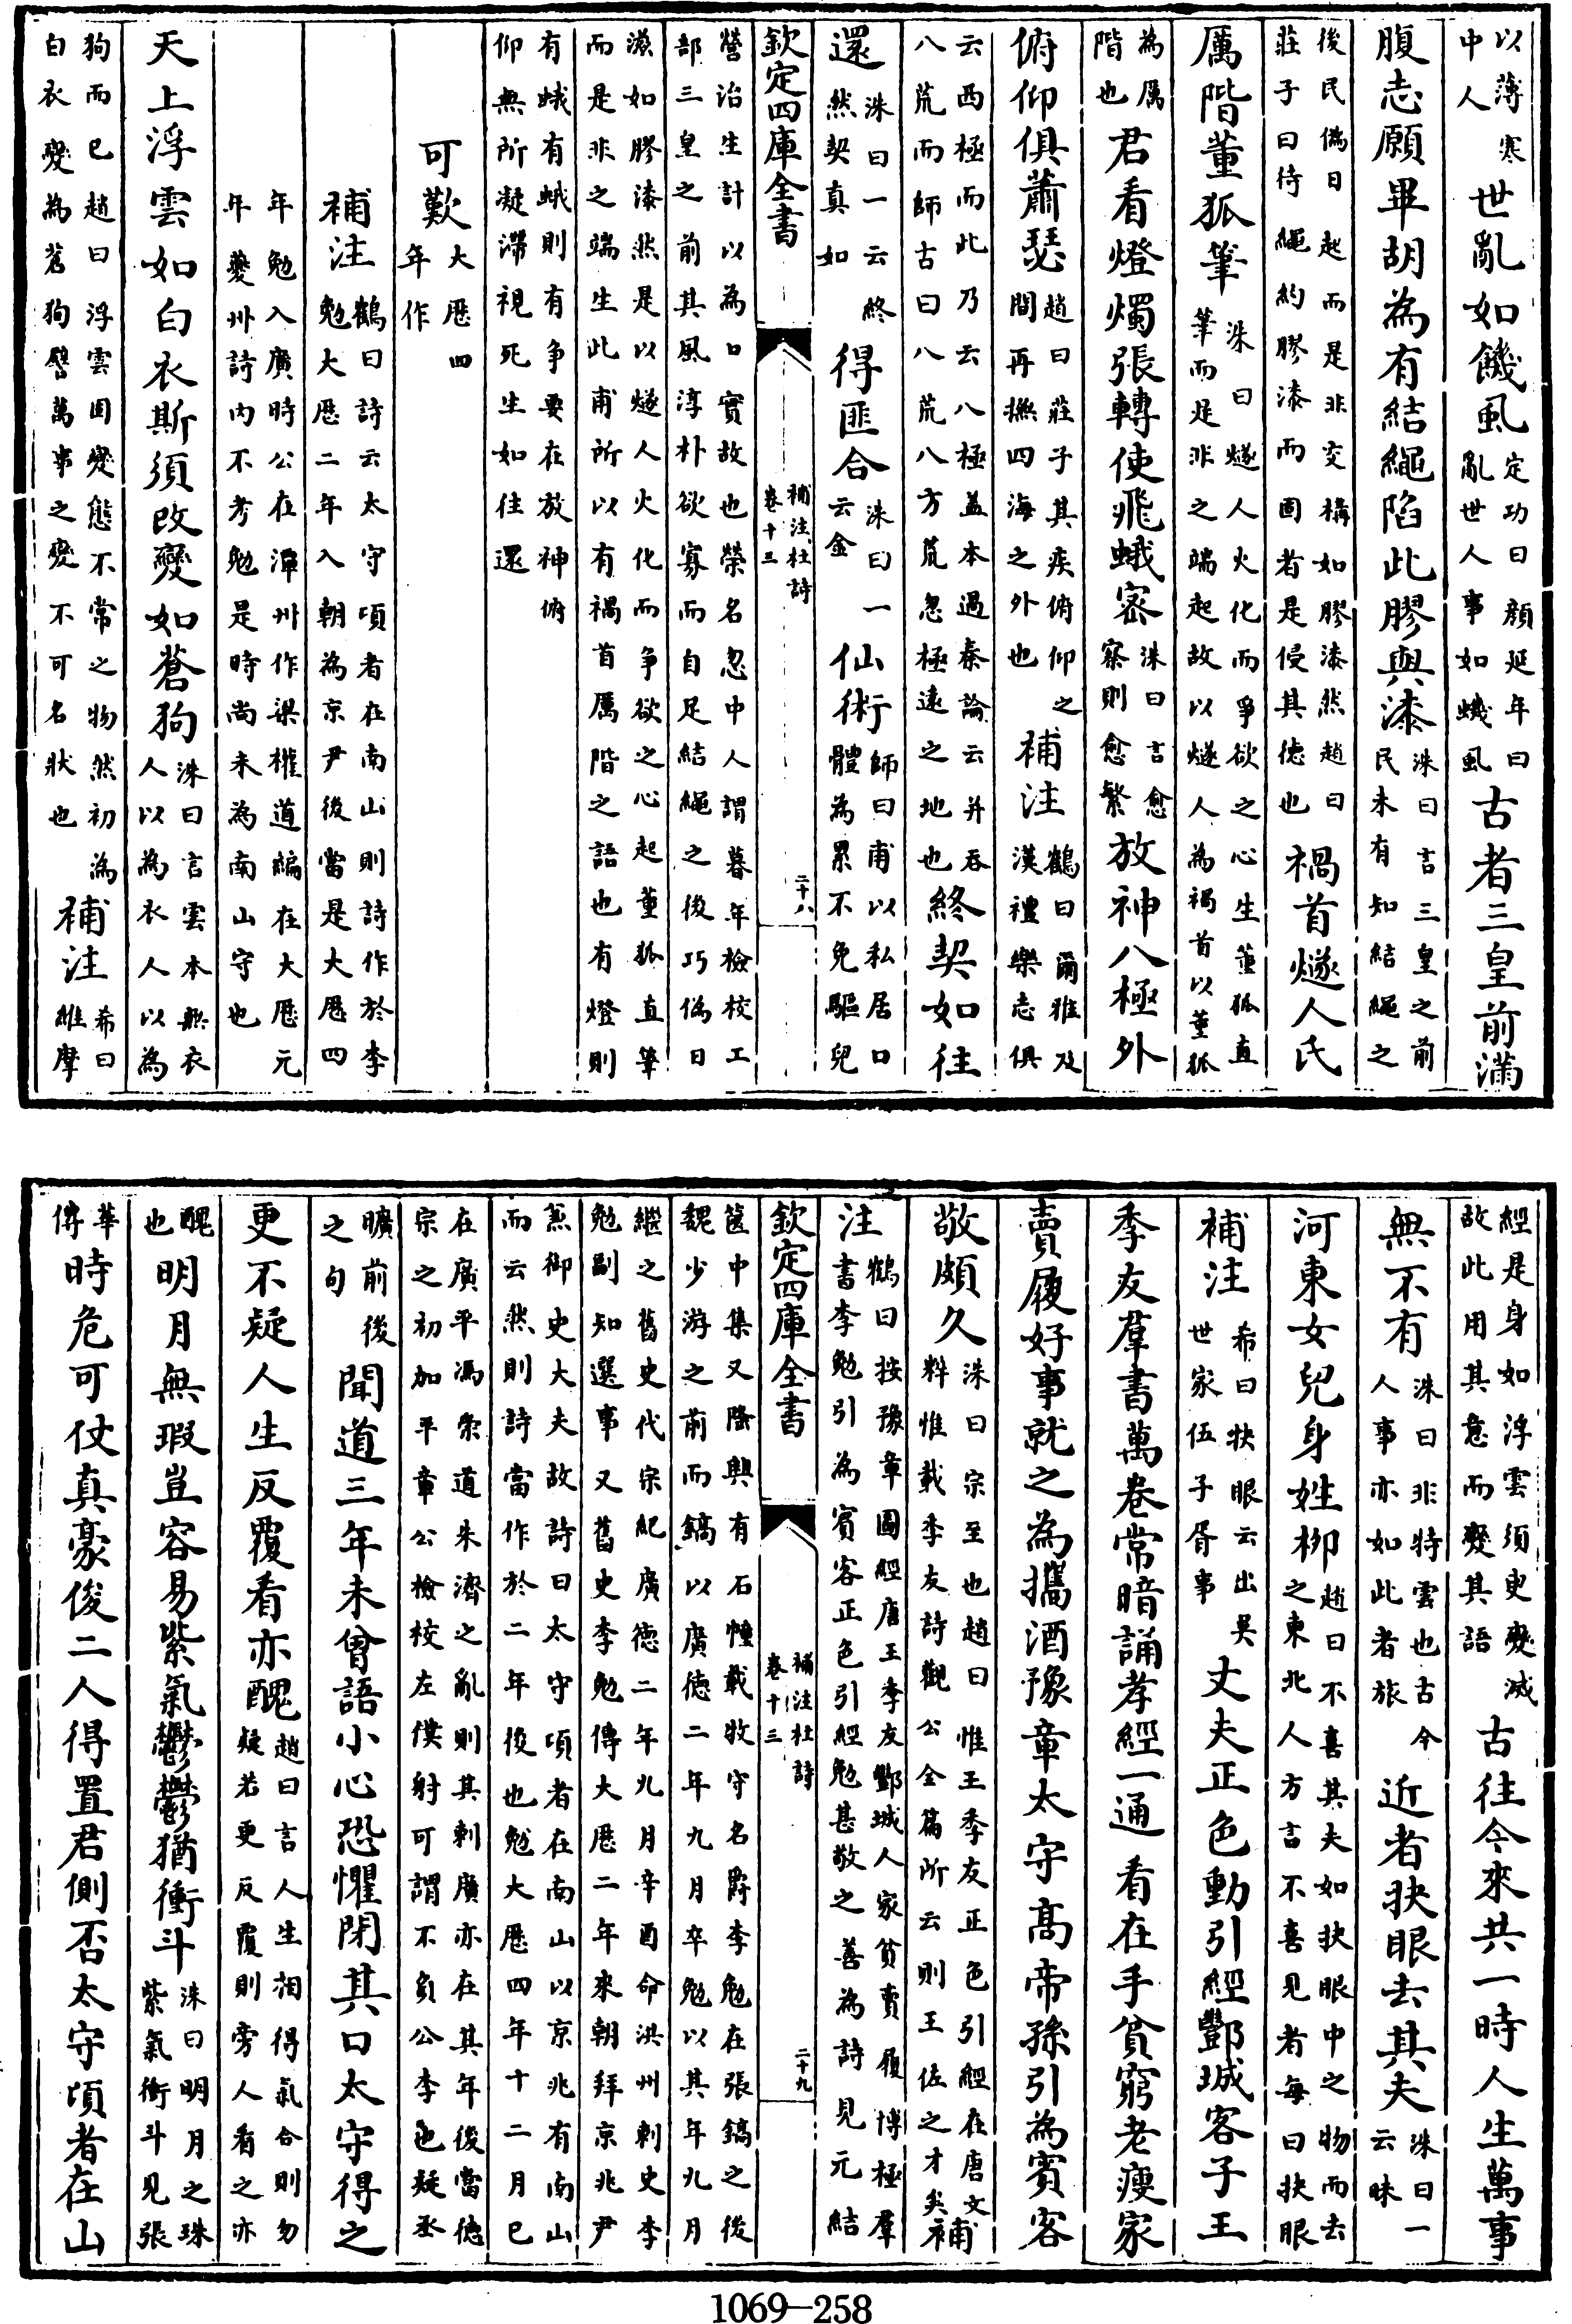 以薄寒中人世亂如饑虱定功曰顔延年曰亂世人事如蟣虱古者三皇前滿
腹志願畢胡為有結繩陷此膠與漆洙曰言三皇之前民未有知結繩之
後民偽日起而是非交搆如膠漆然趙曰莊子曰待繩約膠漆而固者是侵其徳也禍首燧人氏
厲階董狐筆洙曰燧人火化而爭欲之心生董狐直筆而是非之端起故以燧人為禍首以董狐
為厲階也君看燈燭張轉使飛蛾宻洙曰言愈察則愈繁放神八極外
俯仰俱蕭瑟趙曰莊子其疾俯仰之間再撫四海之外也補注鶴曰爾雅及漢禮樂志俱
云西極而此乃云八極盖本過秦論云并吞八荒而師古曰八荒八方荒忽極逺之地也終契如往
還洙曰一云終然契真如得匪合洙曰一云金仙術師曰甫以私居口體為累不免驅兒
欽定四庫全書 補注杜詩 卷十三 二十八
營治生計以為口實故也榮名忽中人謂暮年檢校工部三皇之前其風淳朴欲寡而自足結繩之後巧偽日
滋如膠漆然是以燧人火化而争欲之心起董狐直筆而是非之端生此甫所以有禍首厲階之語也有燈則
有蛾有蛾則有争要在放神俯仰無所凝滯視死生如往還
可歎大厯四年作
補注鶴曰詩云太守頃者在南山則詩作於李勉大厯二年入朝為京尹後當是大厯四
年勉入廣時公在潭州作梁權道編在大厯元年夔州詩内不考勉是時尚未為南山守也
天上浮雲如白衣斯須改變如蒼狗洙曰言雲本無衣人以為衣人以為
狗而已趙曰浮雲固變態不常之物然初為白衣變為蒼狗譬萬事之變不可名狀也補注希曰維摩
經是身如浮雲須臾變滅故此用其意而變其語古往今來共一時人生萬事
無不有洙曰非特雲也古今人事亦如此者旅近者抉眼去其夫洙曰一云昧
河東女兒身姓栁趙曰不喜其夫如抉眼中之物而去之東北人方言不喜見者每曰抉眼
補注希曰抉眼云出吳世家伍子胥事丈夫正色動引經酆城客子王
季友羣書萬卷常暗誦孝經一通看在手貧窮老瘦家
賣屨好事就之為攜酒豫章太守髙帝孫引為賓客
敬頗久洙曰宗至也趙曰惟王季友正色引經在唐文粹惟載季友詩觀公全篇所云則王佐之才矣補
注鶴曰按豫章圖經唐王季友酆城人家貧賣屨博極羣書李勉引為賓客正色引經勉甚敬之善為詩見元結
欽定四庫全書 補注杜詩 卷十三 二十九
篋中集又隆興有石幢載牧守名爵李勉在張鎬之後魏少游之前而鎬以廣徳二年九月卒勉以其年九月
繼之舊史代宗紀廣徳二年九月辛酉命洪州刺史李勉副知選事又舊史李勉傳大厯二年來朝拜京兆尹
兼御史大夫故詩曰太守頃者在南山以京兆有南山而云然則詩當作於二年後也勉大厯四年十二月已
在廣平馮崇道朱濟之亂則其刺廣亦在其年後當徳宗之初加平章公檢校左僕射可謂不負公李也疑丞
曠前後之句聞道三年未曾語小心恐懼閉其口太守得之
更不疑人生反覆看亦醜趙曰言人生相得氣合則勿疑若更反覆則旁人看之亦
醜也明月無瑕豈容易紫氣鬱鬱猶衝斗洙曰明月之珠紫氣衝斗見張
華傳時危可仗真豪俊二人得置君側否太守頃者在山
1069—258